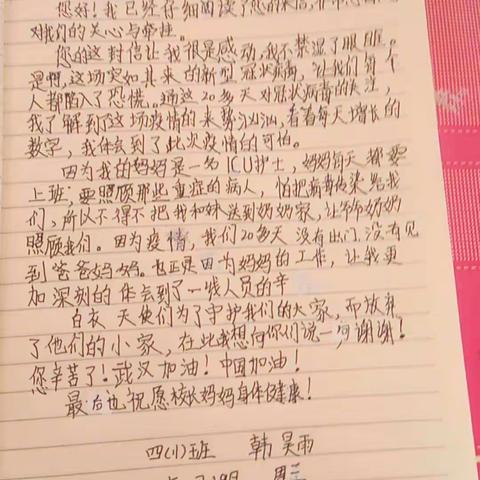 您好!我已经仔细阅读了您的来信,非常感谢
对我们的关心与牵挂。
您的这封信让我很是感动,我不禁湿了眼眶。
是啊,这场突如其来的新型冠状病毒,让我们每个
人都陷入了恐慌。通过这20多天对冠状病毒的关注,
我了解到了这场疫情的来势汹汹,看着每天增长的
数字,我体会到了此次疫情的可怕。
因为我的妈妈是一名ICU护士,妈妈每天都要
上班,要照顾那些重症的病人,怕把病毒传染给我
们,所以不得不把我和妹送到奶奶家,让爷爷奶奶
照顾我们。因为疫情,我们20多天没有出门,没有见
到爸爸妈妈。也正是因为妈妈的工作,让我更
加深刻的体会到了一线人员的辛
白衣天使们为了守护我们的大家,而放弃
了他们的小家,在此我想向你们说一句谢谢!
您辛苦了!武汉加油!中国加油!
最后也祝愿校长妈妈身体健康!
四(1)班 韩昊雨
周三